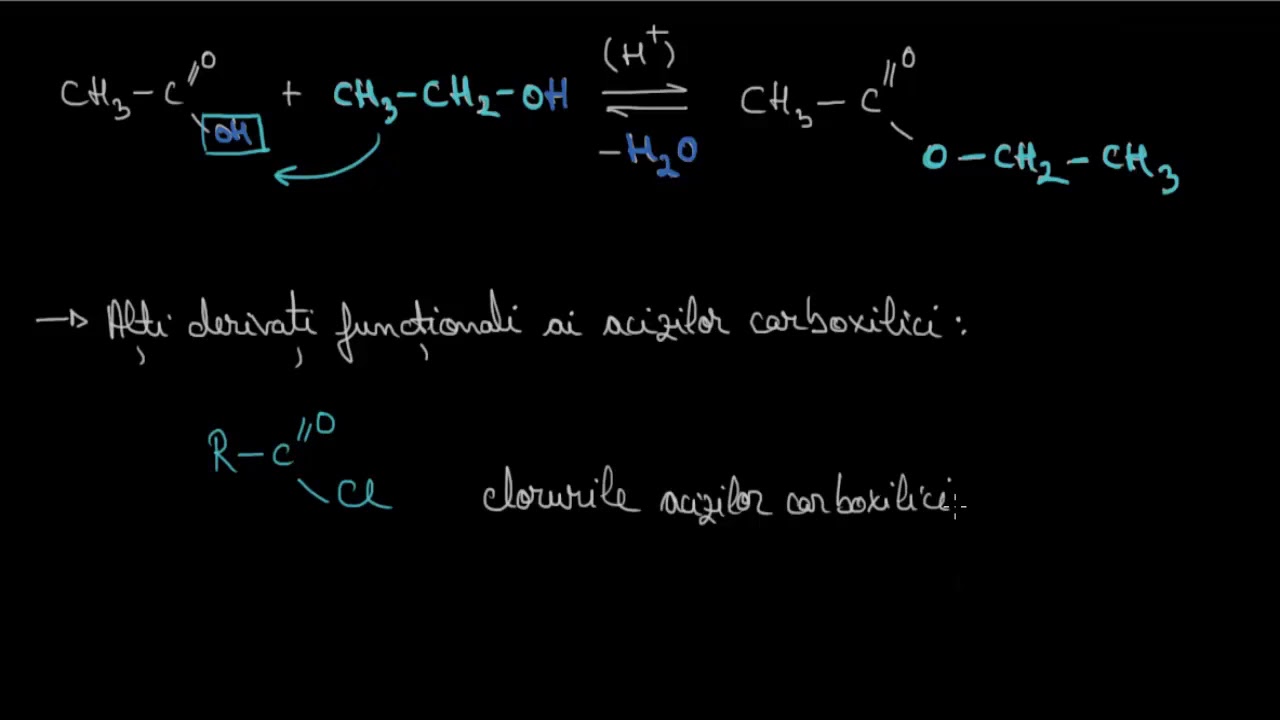 CH₃-C(=O)-OH + CH₃-CH₂-OH (H⁺) ⇌ -H₂O CH₃-C(=O)-O-CH₂-CH₃
→ Alți derivați funcționali ai acizilor carboxilici:
R-C(=O)-Cl clorurile acizilor carboxilici